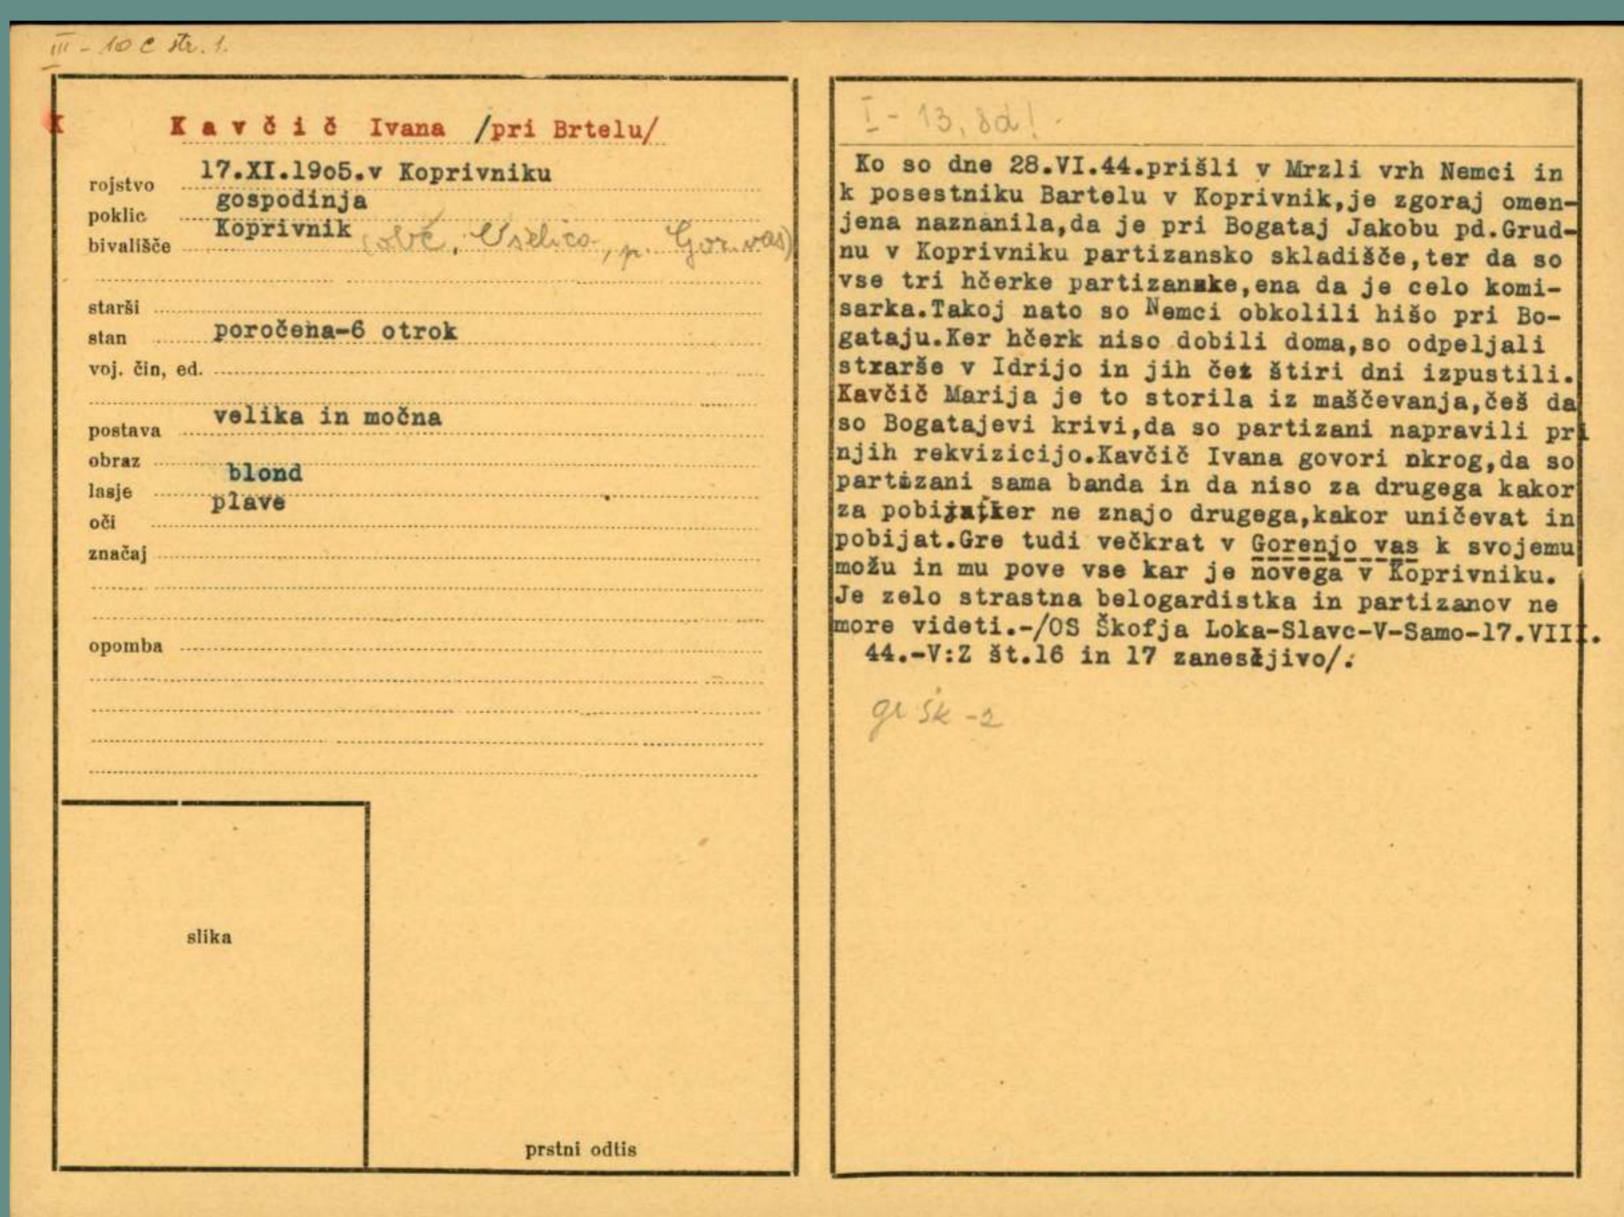 III - 10 c str. 1.
K
K a v č i č Ivana /pri Brtelu/
rojstvo 17.XI.19o5.v Koprivniku
poklic gospodinja
bivališče Koprivnik (obč. Uselica, p. Gor. vas)
starši
stan poročena-6 otrok
voj. čin, ed.
postava velika in močna
obraz
lasje blond
oči plave
značaj
opomba
slika
prstni odtis
I - 13, 8d!
Ko so dne 28.VI.44.prišli v Mrzli vrh Nemci in
k posestniku Bartelu v Koprivnik,je zgoraj omen-
jena naznanila,da je pri Bogataj Jakobu pd.Grud-
nu v Koprivniku partizansko skladišče,ter da so
vse tri hčerke partizanske,ena da je celo komi-
sarka.Takoj nato so Nemci obkolili hišo pri Bo-
gataju.Ker hčerk niso dobili doma,so odpeljali
strarše v Idrijo in jih čez štiri dni izpustili.
Kavčič Marija je to storila iz maščevanja,češ da
so Bogatajevi krivi,da so partizani napravili pri
njih rekvizicijo.Kavčič Ivana govori okrog,da so
partizani sama banda in da niso za drugega kakor
za pobijat,ker ne znajo drugega,kakor uničevat in
pobijat.Gre tudi večkrat v Gorenjo vas k svojemu
možu in mu pove vse kar je novega v Koprivniku.
Je zelo strastna belogardistka in partizanov ne
more videti.-/OS Škofja Loka-Slavc-V-Samo-17.VIII.
44.-V:Z št.16 in 17 zanesljivo/.
gr šk -2